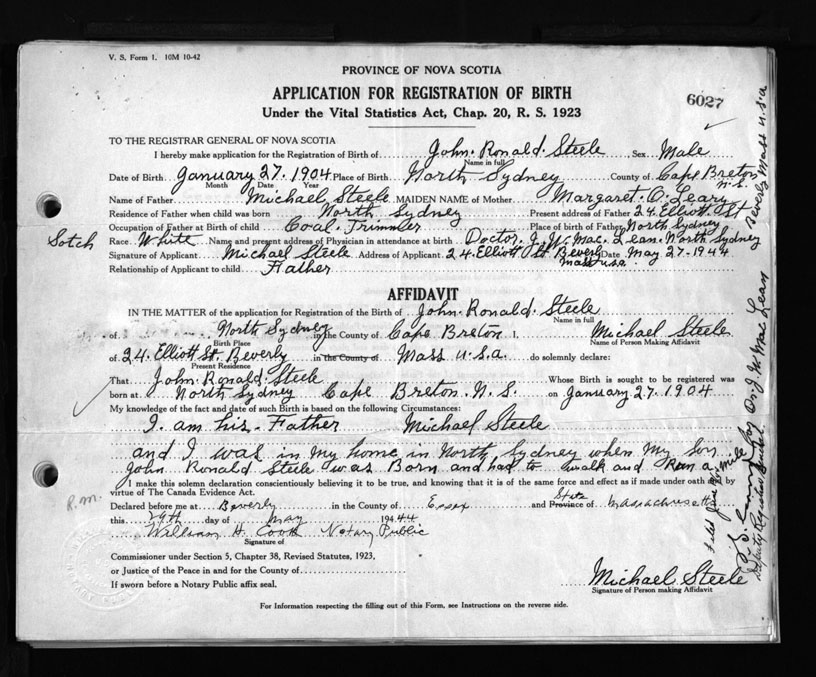 V. S. Form 1. 10M 10-42
PROVINCE OF NOVA SCOTIA
APPLICATION FOR REGISTRATION OF BIRTH
6027
Under the Vital Statistics Act, Chap. 20, R. S. 1923
TO THE REGISTRAR GENERAL OF NOVA SCOTIA
I hereby make application for the Registration of Birth of John. Ronald. Steele Sex Male
Name in full
Date of Birth January 27. 1904 Place of Birth North Sydney County of Cape Breton N.S.
Month Date Year
Name of Father Michael Steele MAIDEN NAME of Mother Margaret. O. Leary
Residence of Father when child was born North Sydney Present address of Father 24. Elliott St
Beverly Mass U.S.A
Occupation of Father at Birth of child Coal. Trimmer Place of birth of Father North Sydney
Sotch
Race White Name and present address of Physician in attendance at birth Doctor. J. W. Mac. Lean. North Sydney
Signature of Applicant Michael Steele Address of Applicant 24. Elliott St Beverly Mass U.S.A. Date May 27. 1944
Relationship of Applicant to child Father
AFFIDAVIT
IN THE MATTER of the application for Registration of the Birth of John. Ronald Steele
Name in full
of North Sydney in the County of Cape Breton I, Michael Steele
Birth Place Name of Person Making Affidavit
of 24. Elliott St. Beverly in the County of Mass U.S.A. do solemnly declare:
Present Residence
That John. Ronald. Steele Whose Birth is sought to be registered was
born at North Sydney Cape Breton. N.S. on January 27. 1904
My knowledge of the fact and date of such Birth is based on the following Circumstances:
I. am his. Father Michael Steele
and I was in my home in North Sydney when my son
John Ronald Steele was Born and had to walk and Run a mile
for Dr. J. W Mac Lean
I make this solemn declaration conscientiously believing it to be true, and knowing that it is of the same force and effect as if made under oath and by
virtue of The Canada Evidence Act.
P.M.
Declared before me at Beverly in the County of Essex and Province State of Massachusetts
this 29th day of May 1944
William H. Cook Notary Public
Signature of
Commissioner under Section 5, Chapter 38, Revised Statutes, 1923,
or Justice of the Peace in and for the County of
If sworn before a Notary Public affix seal.
Michael Steele
Signature of Person making Affidavit
For Information respecting the filling out of this Form, see Instructions on the reverse side.
Deputy Registrar